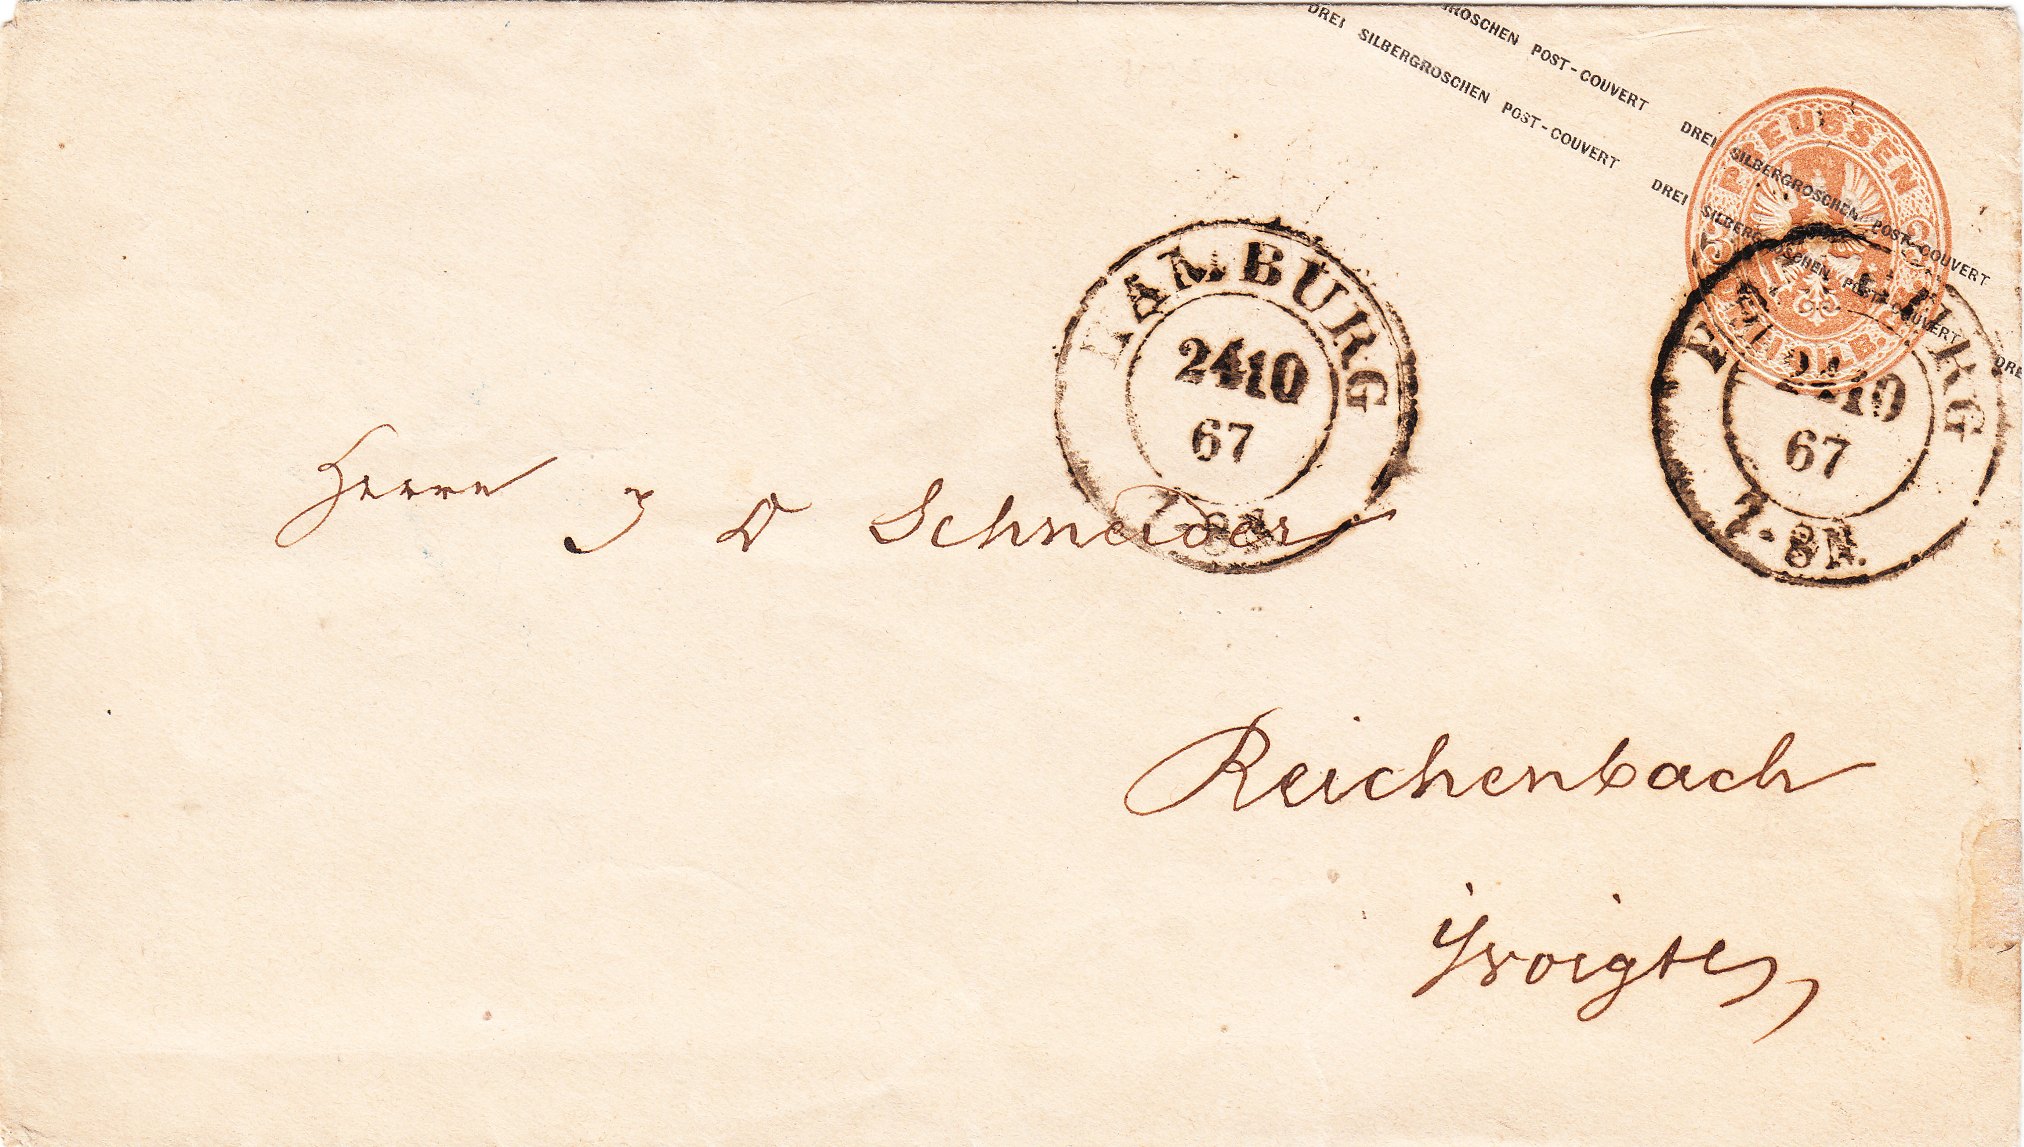 DREI SILBERGROSCHEN POST-COUVERT DREI SILBERGROSCHEN POST-COUVERT
DREI SILBERGROSCHEN POST-COUVERT DREI SILBERGROSCHEN POST-COUVERT DREI
PREUSSEN
HAMBURG
24 10
67
7-8 N.
HAMBURG
24 10
67
7-8 N.
Herrn J D Schneider
Reichenbach
i/voigtl